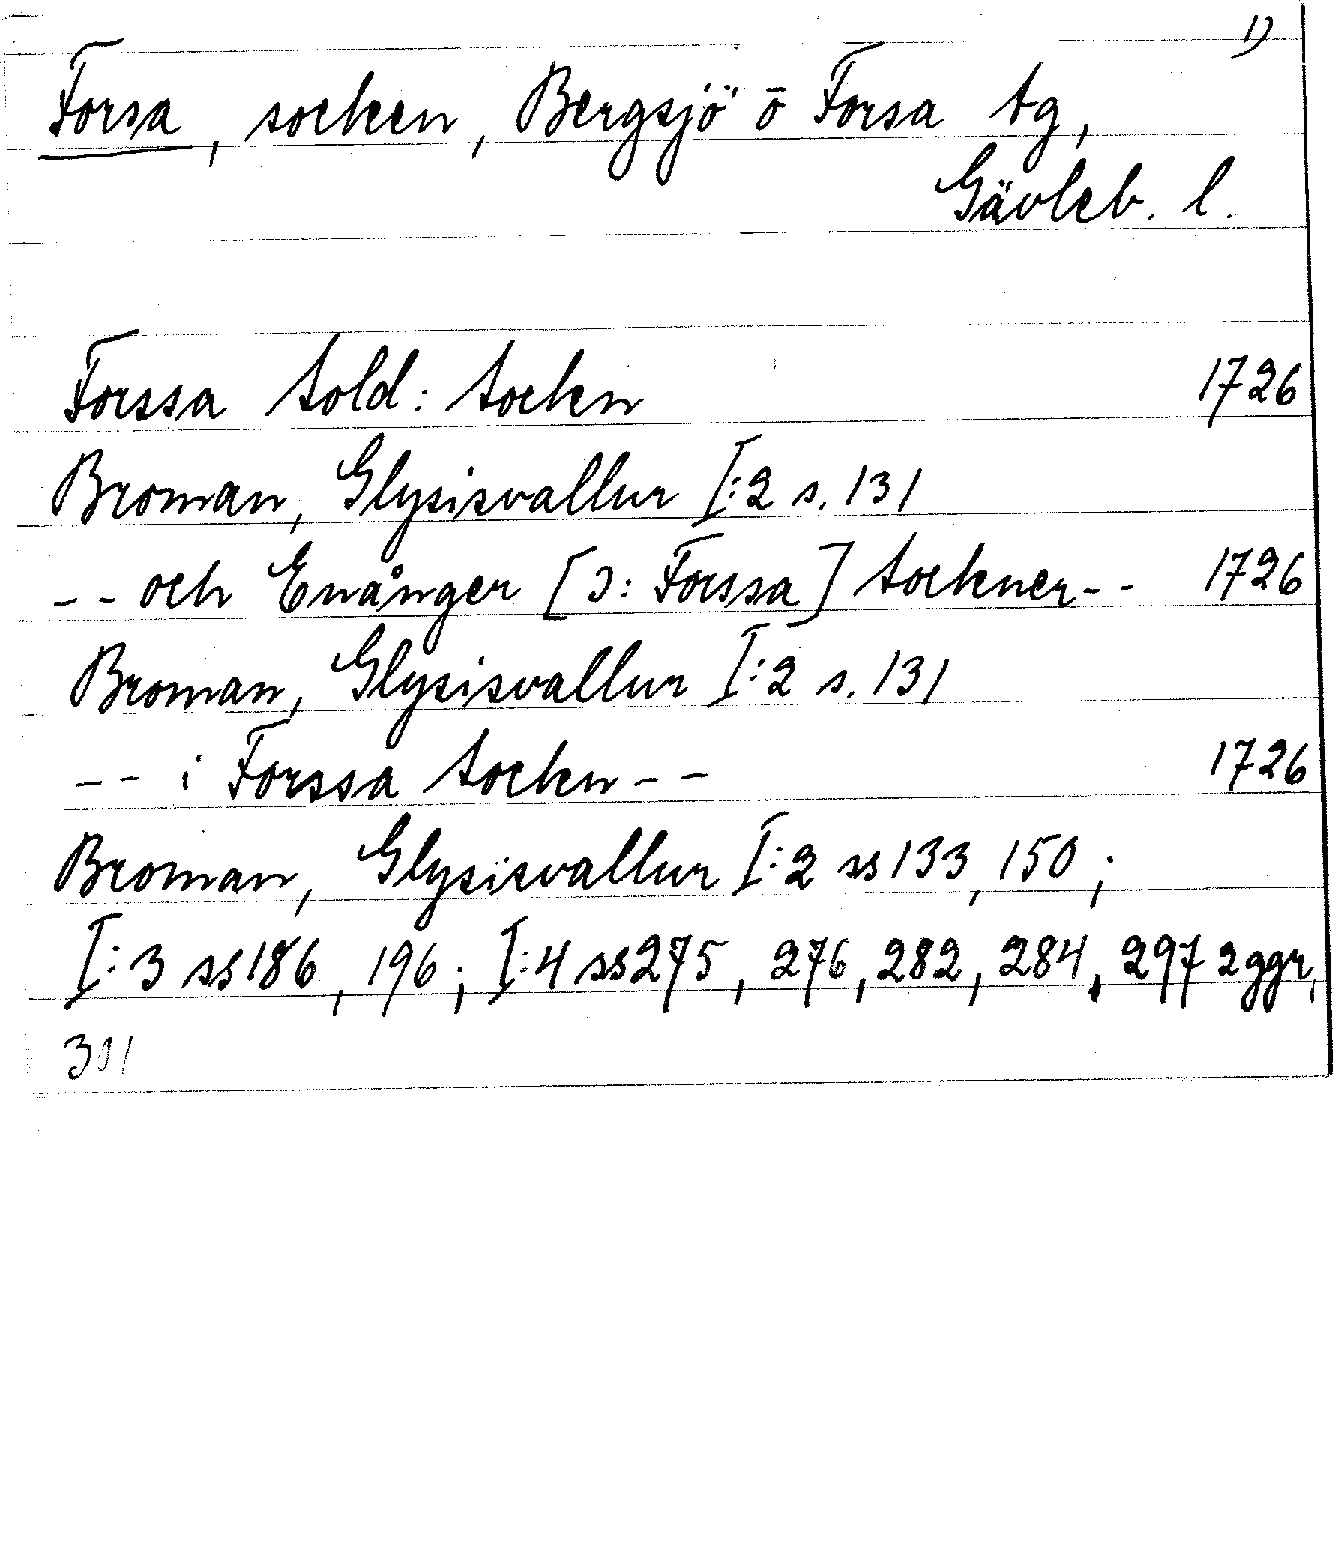 1)
Forsa, socken, Bergsjö o Forsa tg,
Gävleb. l.
Forssa sold: socken 1726
Broman, Glysisvallur I:2 s. 131
-- och Enånger [ɔ: Forssa] sockner-- 1726
Broman, Glysisvallur I:2 s. 131
-- i Forssa socken-- 1726
Broman, Glysisvallur I:2 ss 133, 150;
I:3 ss 186, 196; I:4 ss 275, 276, 282, 284, 297 2ggr,
301